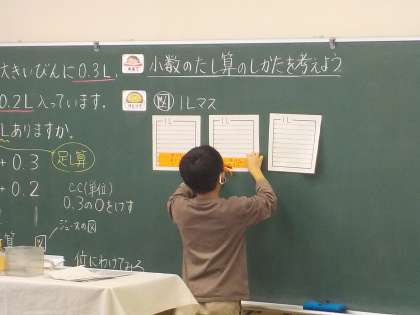 大きいびんに0.3L、
0.2L入っています。
Lありますか。
+ 0.3
足し算
+ 0.2
小数のたし算のしかたを考えよう
図 1Lマス
1L
1L
1L
cc(単位)
0.3の0をけす
ジュースの図
算 図
位にわけてみる